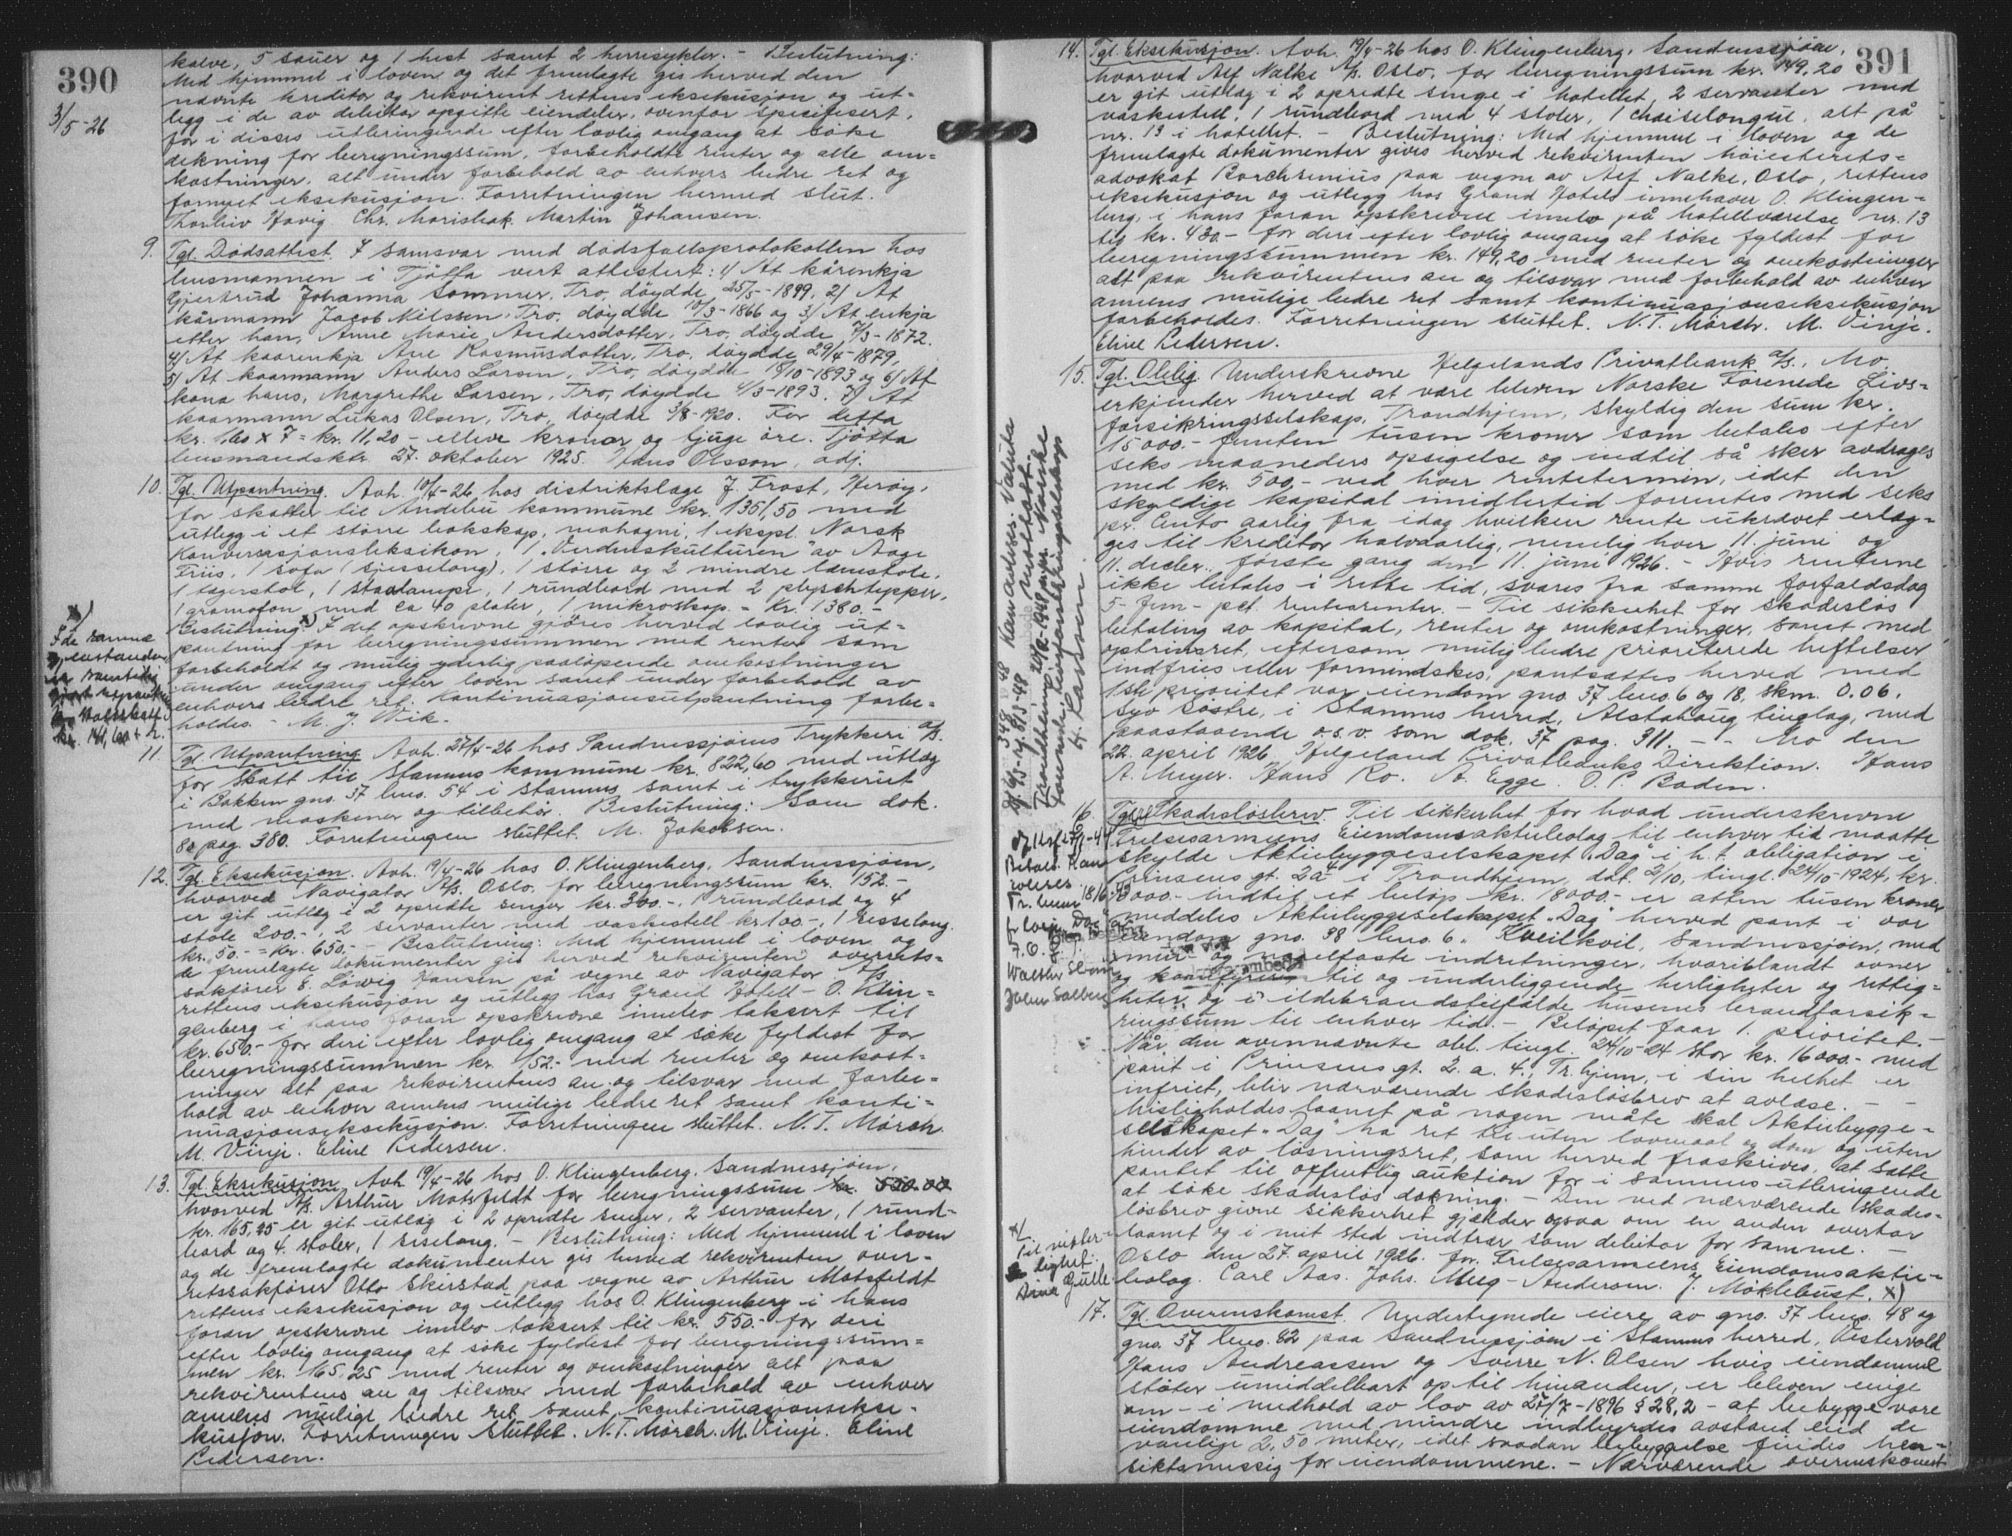 390
3/5-26
kalve, 5 sauer og 1 hest samt 2 herresykler. - Beslutning:
Med hjemmel i loven og det fremlagte gis herved den
nævnte kreditor og rekvirent rettens eksekusjon og ut-
legg i de av debitor opgitte eiendeler, ovenfor specifisert,
for i disses utleringende efter lovlig omgang at söke
dekning for beregningssum, forbeholdte renter og alle om-
kostninger, alt under forbehold av enhvers bedre ret og
fornyet eksekusjon. Forretningen hermed slut.
Thorleiv Havig Chr. Marishak. Martin Johansen.
9. Tgl. Dödsattest. I samsvar med dödsfallsprotokollen hos
lensmannen i Tjötta vert attestert: 1/ At kårenkja
Gjertrud Johanna Sommer, Tro, döydde 25/5-1899, 2/ At
kårmann Jacob Nilssen, Tro, döydde 10/3-1866 og 3/ At enkja
etter han, Anne Marie Andersdotter, Tro, döydde 7/3-1872.
4/ At kaarenkja Ane Rasmusdotter, Tro, döydde 29/4-1879,
5/ At kaarmann Anders Larsen, Tro, döydde 18/10-1893 og 6/ At
kona hans, Margrethe Larsen, Tro, döydde 4/3-1893. 7/ At
kaarmann Lukas Olsen, Tro, döydde 5/8-1920. For detta
kr. 1,60 x 7 = kr. 11,20 - elleve kronor og tjuge öre. Tjötta
lensmandsktr. 27. oktober 1925. Hans Olsson, adj.
10. Tgl. Utpantning. Avh. 10/4-26 hos distriktslæge J. Frost, Heröy,
for skatter til Andebu kommune kr. 1351,50 med
utlegg i et större bokskap, mahogni, 1 ekspl. Norsk
Konversasjonsleksikon, 1 "Verdenskulturen" av Aage
Friis, 1 sofa (sjesselong), 1 större og 2 mindre lænestole,
1 lægerstol, 1 staalampe, 1 rundbord med 2 plyschtepper,
1 gramofon med ca 40 plater, 1 mikroskop = Kr. 1380.-
Beslutning: x) I det opskrevne gjöres herved lovlig ut-
pantning for beregningssummen med renter som
forbeholdt og mulig yderlig paalöpende omkostninger
under omgang efter loven samt under forbehold av
enhvers bedre ret. Kontinuasjonsutpantning forbe-
holdes. - M. J. Wiik.
x)
I de samme
gjenstander
er samtidig
gjort utpantn.
for statsskatt
kr. 141,60 + r.
11. Tgl. Utpantning Avh. 27/4-26 hos Sandnessjöens Trykkeri A/S.
for skatt til Stamnes kommune kr. 822,60 med utlæg
i Bakken gno. 37 bno. 54 i Stamnes samt i trykkeriet
med maskiner og tilbehör. Beslutning: Som dok.
82 pag. 380. Forretningen sluttet. M. Jakobsen.
12. Tgl. Eksekusjon. Avh. 19/4-26 hos O. Klingenberg, Sandnessjöen,
hvorved Navigator A/S. Oslo, for beregningssum kr. 152.-
er git utlæg i 2 opredte senger kr. 300-, 1 rundbord og 4
stole 200.-, 2 servanter med vaskestell kr 100-, 1 sesselong
kr. 50.- = kr. 650.- - Beslutning: Med hjemmel i loven og
de fremlagte dokumenter gis herved rekvirenten overrets-
sakförer E. Löwig Hansen på vegne av Navigator A/S.
rettens eksekusjon og utlegg hos Grand Hotell - O. Klin-
genberg i hans foran opskrevne innbo taksert til
kr. 650.- for deri efter lovlig omgang at söke fyldest for
beregningssummen kr. 152.- med renter og omkost-
ninger alt paa rekvirentens an- og tilsvar med forbe-
hold av enhver annens mulige bedre ret samt konti-
nuasjonseksekusjon. Forretningen sluttet. N. T. Mörch.
M. Vinje. Eline Pedersen.
13. Tgl. Eksekusjon Avh. 19/4-26 hos O. Klingenberg, Sandnessjöen,
hvorved A/S. Arthur Motsfeldt for beregningssum kr. 550.00
kr. 165,25 er git utlæg i 2 opredte senger, 2 servanter, 1 rund-
bord og 4. stoler, 1 seselong. - Beslutning: Med hjemmel i loven
og de fremlagte dokumenter gis herved rekvirenten over-
retssakförer Otto Skirstad paa vegne av Arthur Motsfeldt
rettens eksekusjon og utlegg hos O. Klingenberg i hans
foran opskrevne innbo taksert til kr. 550.- for deri
efter lovlig omgang at söke fyldest for beregningssum-
men kr. 165,25 med renter og omkostninger alt paa
rekvirentens an og tilsvar med forbehold av enhver
annens mulige bedre ret samt kontinuasjonsekse-
kusjon. Forretningen sluttet. N. T. Mörch. M. Vinje. Eline
Pedersen.
391
14. Tgl. Eksekusjon. Avh. 19/4-26 hos O. Klingenberg, Sandnessjöen,
hvorved Alf Nalke A/S. Oslo, for beregningssum kr. 149,20
er git utlæg i 2 opredte senge i hotellet, 2 servanter med
vaskestell, 1 rundbord med 4 stoler, 1 chaiselongue, alt på
nr. 13 i hotellet. - Beslutning: Med hjemmel i loven og de
fremlagte dokumenter gives herved rekvirenten höiesterets-
advokat Borchrevius paa vegne av Alf Nalke, Oslo, rettens
eksekusjon og utlegg hos Grand Hotels innehaver O. Klingen-
berg, i hans foran opskrevne innbo på hotellværelse nr. 13
til kr. 430.- for deri efter lovlig omgang at söke fyldest for
beregningssummen kr. 149,20 med renter og omkostninger
alt paa rekvirentens an og tilsvar med forbehold av enhver
annens mulige bedre ret samt kontinuasjonseksekusjon
forbeholdes. Forretningen sluttet. N. T. Mörch. M. Vinje.
Eline Pedersen.
15. Tgl. Oblig. Underskrevne Helgelands Privatbank A/S., Mo,
erkjender herved at være bleven Norske Forenede Livs-
forsikringsselskap, Trondhjem, skyldig den sum kr.
15000.- femten tusen kroner som betales efter
seks maaneders opsigelse og indtil så sker avdrages
med kr. 500,- ved hver rentetermin, idet den
skyldige kapital imidlertid forrentes med seks
pr. Cento aarlig fra idag hvilken rente ukrævet erlæg-
ges til kreditor halvaarlig, nemlig hver 11. juni og
11. decbr., förste gang den 11. juni 1926. - Hvis renterne
ikke betales i rette tid, svares fra samme forfaldsdag
5 - fem - pct. rentesrenter. - Til sikkerhet for skadeslös
betaling av kapital, renter og omkostninger, samt med
optrinsret, eftersom mulig bedre prioriterede heftelser
indfries eller formindskes, pantsættes herved med
1ste prioritet vor eiendom gno. 37 bno. 6 og 18, skm. 0.06.
Syv söstre, i Stamnes herred, Alstahaug tinglag, med
paastaaende o.s.v. som dok. 37 pag. 311. - - Mo den
22. april 1926. Helgeland Privatbanks Direktion. Hans
A. Meyer. Hans Ro. A. Egge. O. P. Baden.
Kan avlæses. Valuta
mottatt.
Trondheim, 20/2-1948 Norske
Forenede Livsforsikringsselskap
H. Larsen
16. Tgl. Skadeslösbrev. Til sikkerhet for hvad underskrevne
Frelsesarmeens Eiendomsaktiebolag til enhver tid maatte
skylde Aktiebyggeselskapet "Dag" i h. t. obligation i
Prinsens gt. 2a 4 i Trondhjem, dat. 2/10, tingl. 24/10-1924, kr.
18000.- indtil et belöp kr. 18000.- er atten tusen kroner
meddeles Aktiebyggeselskapet "Dag" herved pant i vor
eiendom gno. 38 bno. 6. Kveilkvil, Sandnessjöen, med
mur og nagelfaste indretninger, hvoriblandt ovner
og komfyrer til og underliggende herligheter og rettig-
heter og i ildebrandstilfælde husenes brandforsik-
ringssum til enhver tid. - Belöpet faar 1. prioritet. -
Når den ovennævnte obl. tingl. 24/10-24 stor kr. 16000.- med
pant i Prinsensgt. 2. a. 4., Tr.hjem, i sin helhet er
infriet, blir nærværende skadeslösbrev at avlæse. - -
Misligholdes laanet på nogen måte skal Aktiebygge-
selskapet "Dag" ha ret til uten lovmaal og dom og uten
hinder av lösningsret, som herved fraskrives, at sætte
pantet til offentlig auktion for i sammes utleringende
at söke skadeslös dækning. - Den ved nærværende skades-
lösbrev givne sikkerhet gjælder ogsaa om en anden overtar
laanet og i mit sted indtrær som debitor for samme. -
Oslo den 27. april 1926. for Frelsesarmeens Eiendomsaktie-
bolag. Carl Aas. Johs. Myeg-Anderson. J. Möklebust. x)
x)
Til vitter-
lighet:
Gulle
17. Tgl. Overenskomst. Undertegnede eiere av gno. 37 bno. 48 og
gno. 37 bno. 82 paa Sandnessjöen i Stamnes herred, Vestervold
Hans Andreassen og Sverre N. Olsen hvis eiendommer
stöter umiddelbart op til hinanden, er bleven enige
om - i medhold av lov av 27/7-1896 § 28,2 - at bebygge vore
eiendomme med mindre indbyrdes avstand end de
vanlige 2,50 meter, idet saadan bebyggelse findes hen-
siktsmessig for eiendommene. - Nærværende overenskomst